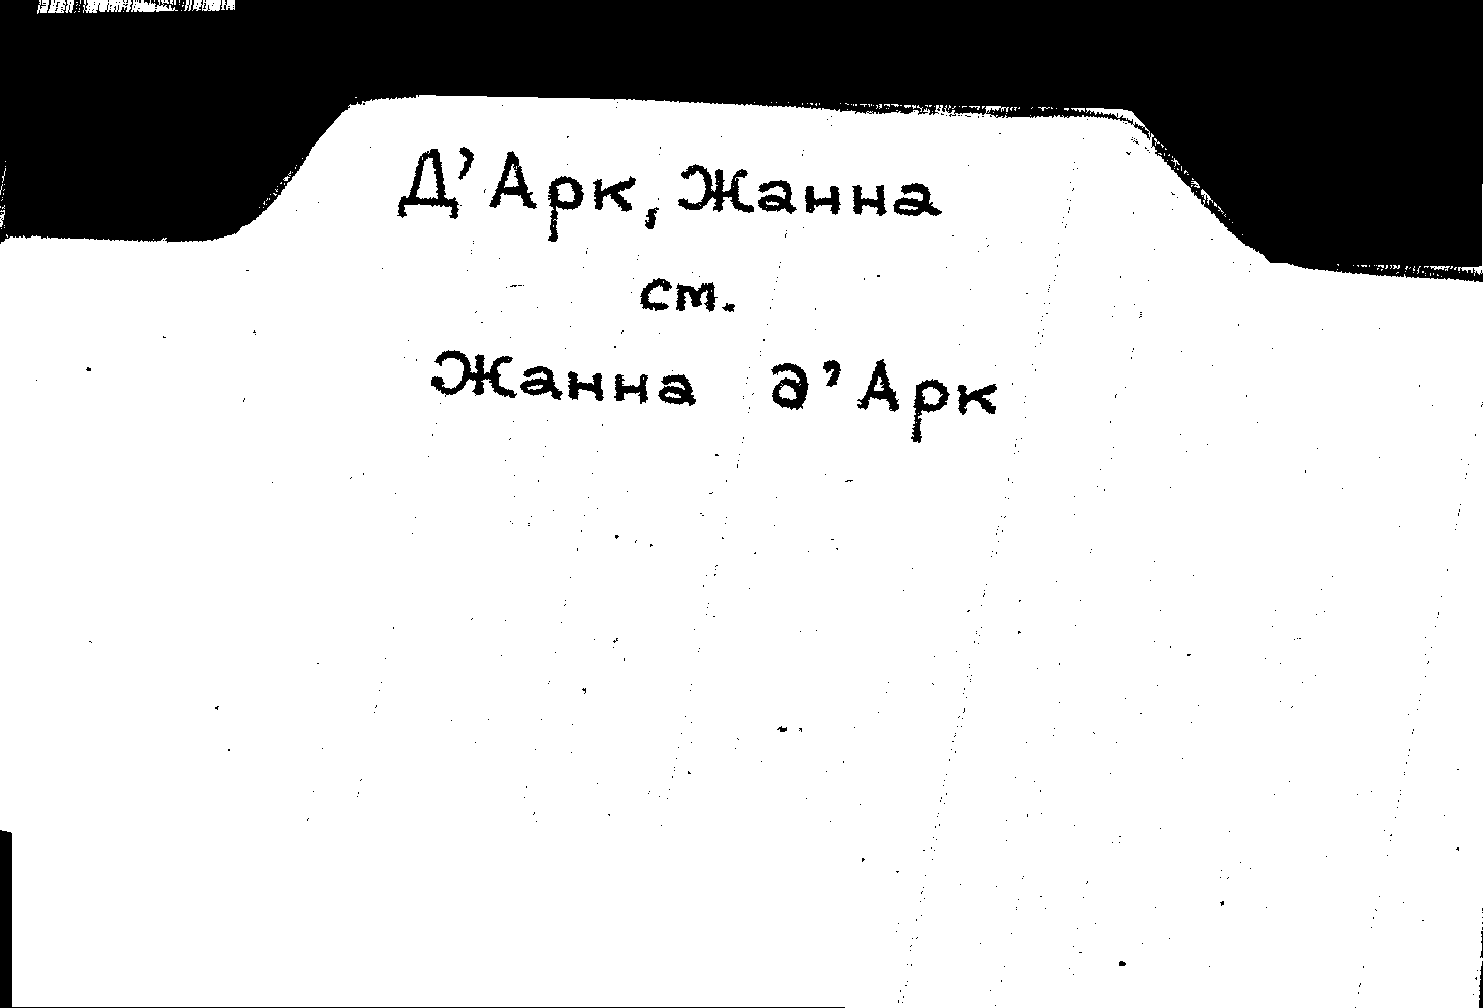 Д’Арк, Жанна
ст.
Жанна д’Арк